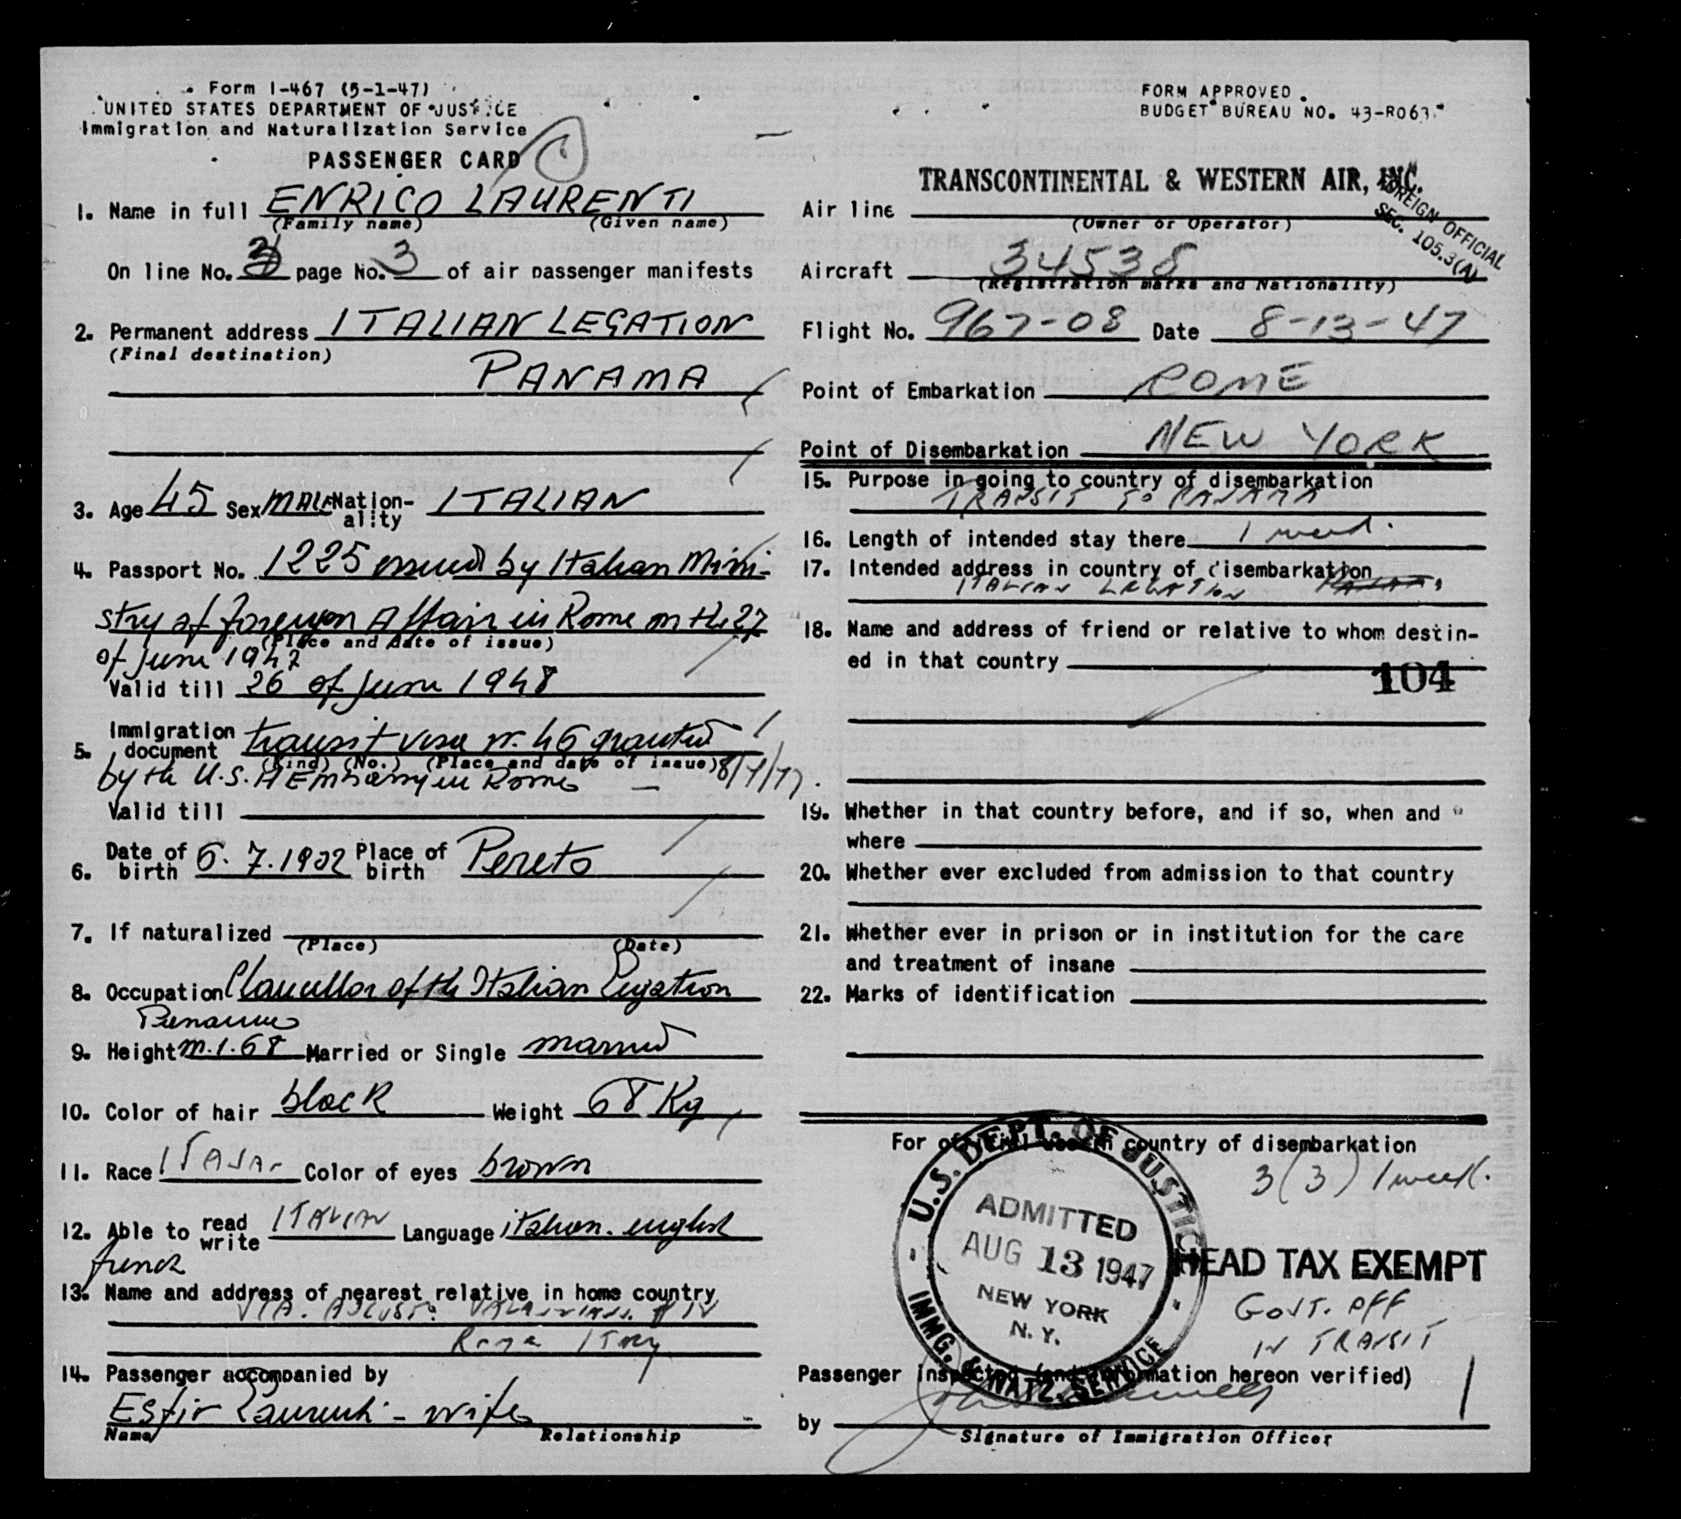 Form I-467 (5-1-47)
UNITED STATES DEPARTMENT OF JUSTICE
Immigration and Naturalization Service
PASSENGER CARD
FORM APPROVED
BUDGET BUREAU NO. 43-R063
1. Name in full ENRICO LAURENTI
(Family name) (Given name)
On line No. 3 page No. 3 of air passenger manifests
2. Permanent address ITALIAN LEGATION
(Final destination)
PANAMA
3. Age 45 Sex MALE Nationality ITALIAN
4. Passport No. 1225 issued by Italian Mini-
stry of foreign Affair in Rome on the 27
(Place and date of issue)
of June 1947
Valid till 26 of June 1948
5. Immigration document transit visa nr. 46 granted
(Kind) (No.) (Place and date of issue)
by the U.S.A Embassy in Rome
Valid till
6. Date of birth 6.7.1902 Place of birth Pereto
7. If naturalized
(Place) (Date)
8. Occupation Chancellor of the Italian Legation
Panama
9. Height m.1.68 Married or Single married
10. Color of hair black Weight 68 Kg
11. Race Color of eyes brown
12. Able to read write ITALIAN Language italian. english
french
13. Name and address of nearest relative in home country
VIA.
Italy
14. Passenger accompanied by
Estir Laurenti - wife
Name Relationship
TRANSCONTINENTAL & WESTERN AIR, INC.
FOREIGN OFFICIAL
SEC. 105.3(A)
Air line
(Owner or Operator)
Aircraft 34538
(Registration marks and Nationality)
Flight No. 967-08 Date 8-13-47
Point of Embarkation ROME
Point of Disembarkation NEW YORK
15. Purpose in going to country of disembarkation
TRANSIT TO PANAMA
16. Length of intended stay there 1 week.
17. Intended address in country of disembarkation
ITALIAN LEGATION
18. Name and address of friend or relative to whom destin-
ed in that country
104
19. Whether in that country before, and if so, when and
where
20. Whether ever excluded from admission to that country
21. Whether ever in prison or in institution for the care
and treatment of insane
22. Marks of identification
For official use in country of disembarkation
3(3) 1 week.
U.S. DEPT. OF JUSTICE
ADMITTED
AUG 13 1947
NEW YORK
N. Y.
IMMG. & NATZ. SERVICE
HEAD TAX EXEMPT
GOVT. OFF
IN TRANSIT
Passenger inspected (and information hereon verified)
by
Signature of Immigration Officer